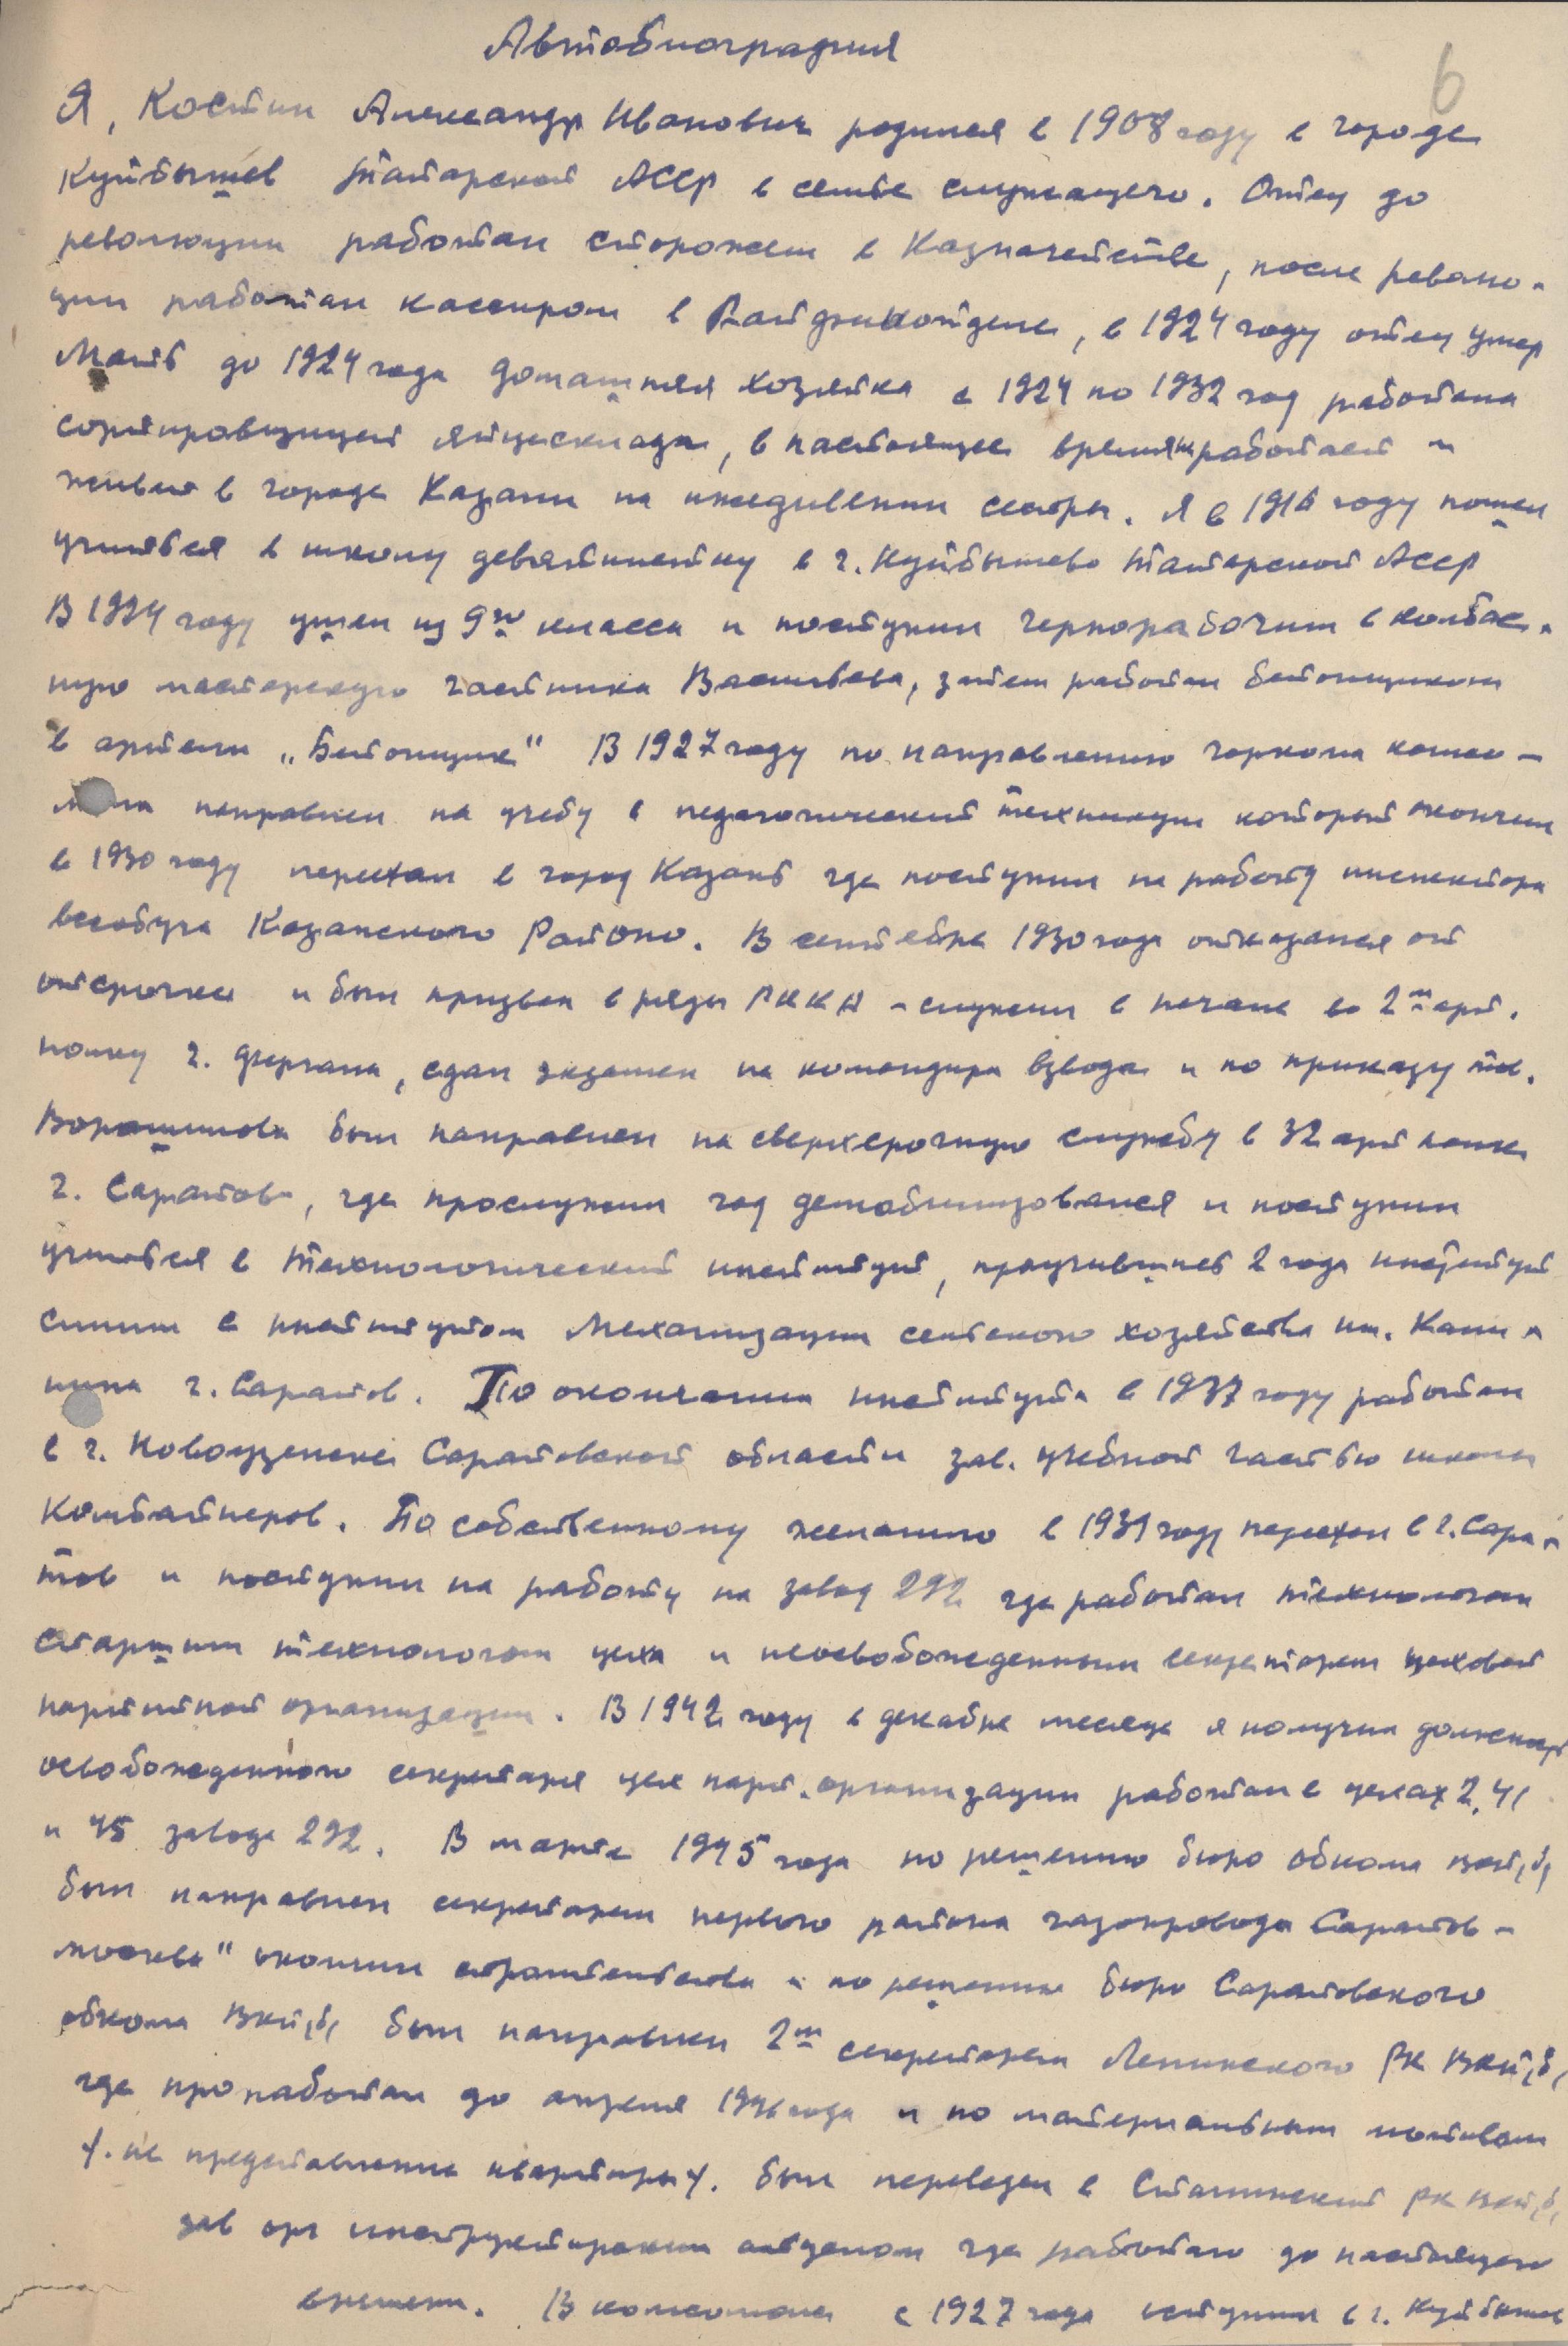 Автобиография
6
Я, Костин Александр Иванович родился в 1908 году в городе
Куйбышев Татарской АССР в семье служащего. Отец до
революции работал сторожем в Казначействе, после револю-
ции работал кассиром в Райфинотделе, в 1924 году отец умер
Мать до 1924 года домашняя хозяйка с 1924 по 1932 год работала
сортировщицей яйцесклада, в настоящее время не работает и
живет в городе Казани на иждивении сестры. Я в 1916 году пошел
учиться в школу девятилетку в г. Куйбышево Татарской АССР
В 1924 году ушел из 9го класса и поступил чернорабочим в колбас-
ную мастерскую частника Васильева, затем работал бетонщиком
в артели „Бетонщик" В 1927 году по направлению горкома комсо-
мола направлен на учебу в педагогический техникум который окончил
в 1930 году переехал в город Казань где поступил на работу инспектора
всеобуча Казанского Районо. В сентябре 1930 года отказался от
отсрочки и был призван в ряды РККА - служил в начале во 2м арт.
полку г. Фергана, сдал экзамен на командира взвода и по приказу тов.
Ворошилова был направлен на сверхсрочную службу в 32 арт полк
г. Саратов, где прослужил год демобилизовался и поступил
учиться в Технологический институт, проучившись 2 года институт
слили с институтом Механизации сельского хозяйства им. Кали-
нина г. Саратов. По окончании института в 1937 году работал
в г. Новоузенске Саратовской области зав. учебной частью школы
Комбайнеров. По собственному желанию в 1939 году переехал в г. Сара-
тов и поступил на работу на завод 292 где работал технологом
старшим технологом цеха и неосвобожденным секретарем цеховой
партийной организации. В 1942 году в декабре месяце я получил должность
освобожденного секретаря цех парт. организации работал в цехах 2, 41
и 45 завода 292. В марте 1945 года по решению бюро обкома ВКП(б)
был направлен секретарем первого района газопровода Саратов-
Москва" окончил строительство и по решению бюро Саратовского
обкома ВКП(б) был направлен 2м секретарем Ленинского РК ВКП(б)
где проработал до апреля 1946 года и по материальным мотивам
/. не представление квартиры /. был переведен в Сталинский РК ВКП(б)
зав орг инструкторским отделом где работаю до настоящего
времени. В комсомол с 1927 года вступил в г. Куйбышев